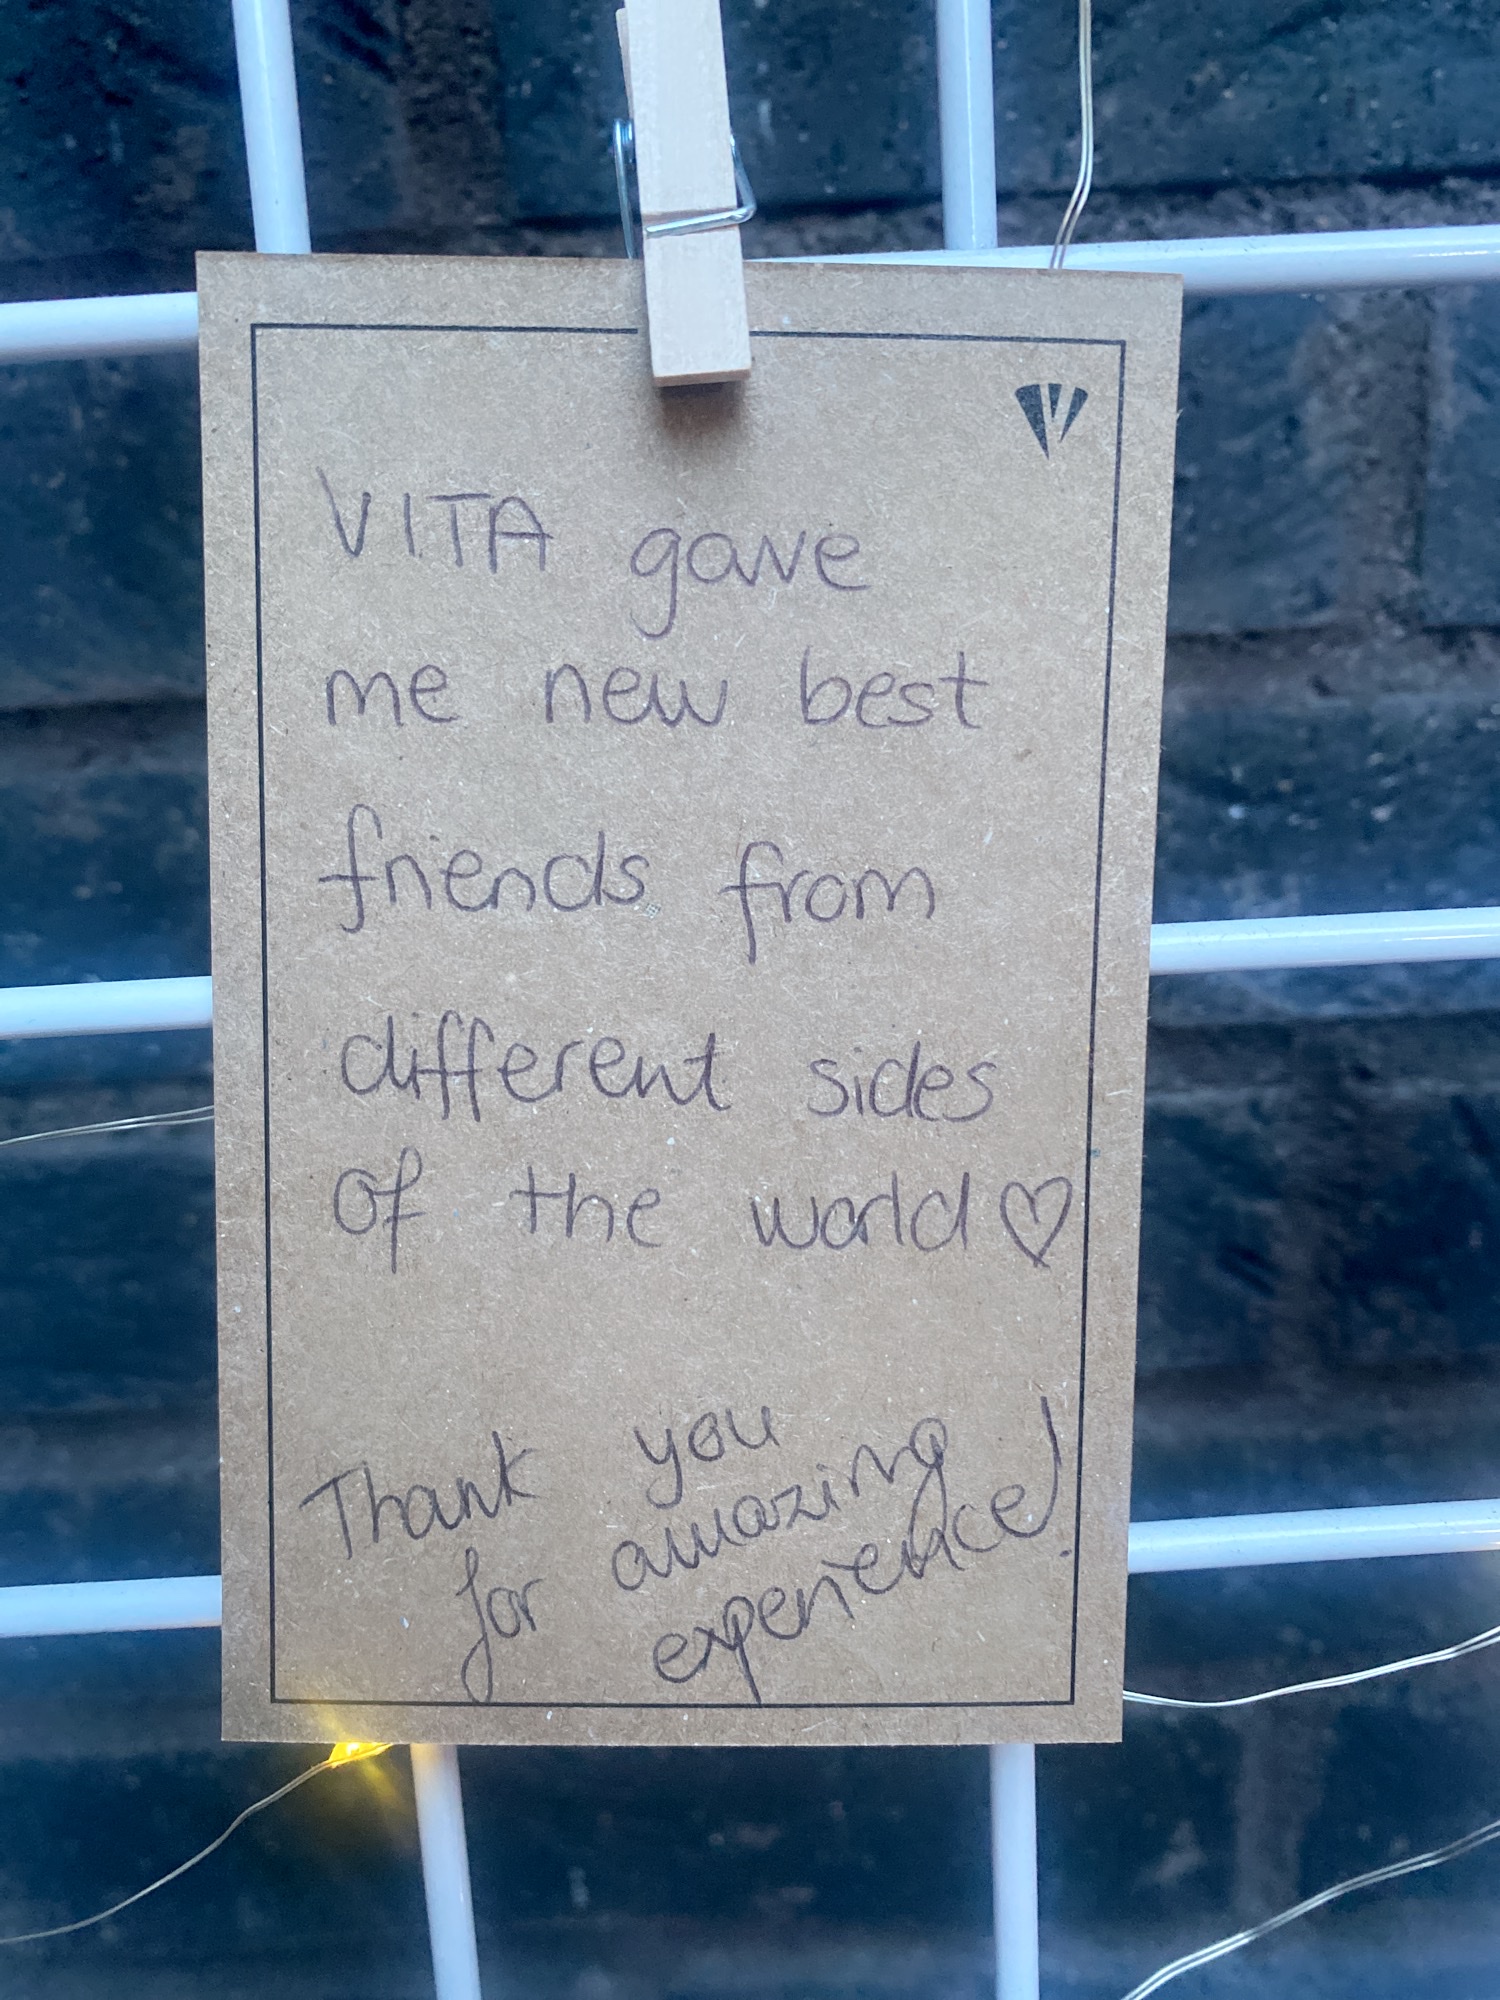 VITA gave
me new best
friends from
different sides
of the world♡
Thank you
for amazing
experience!